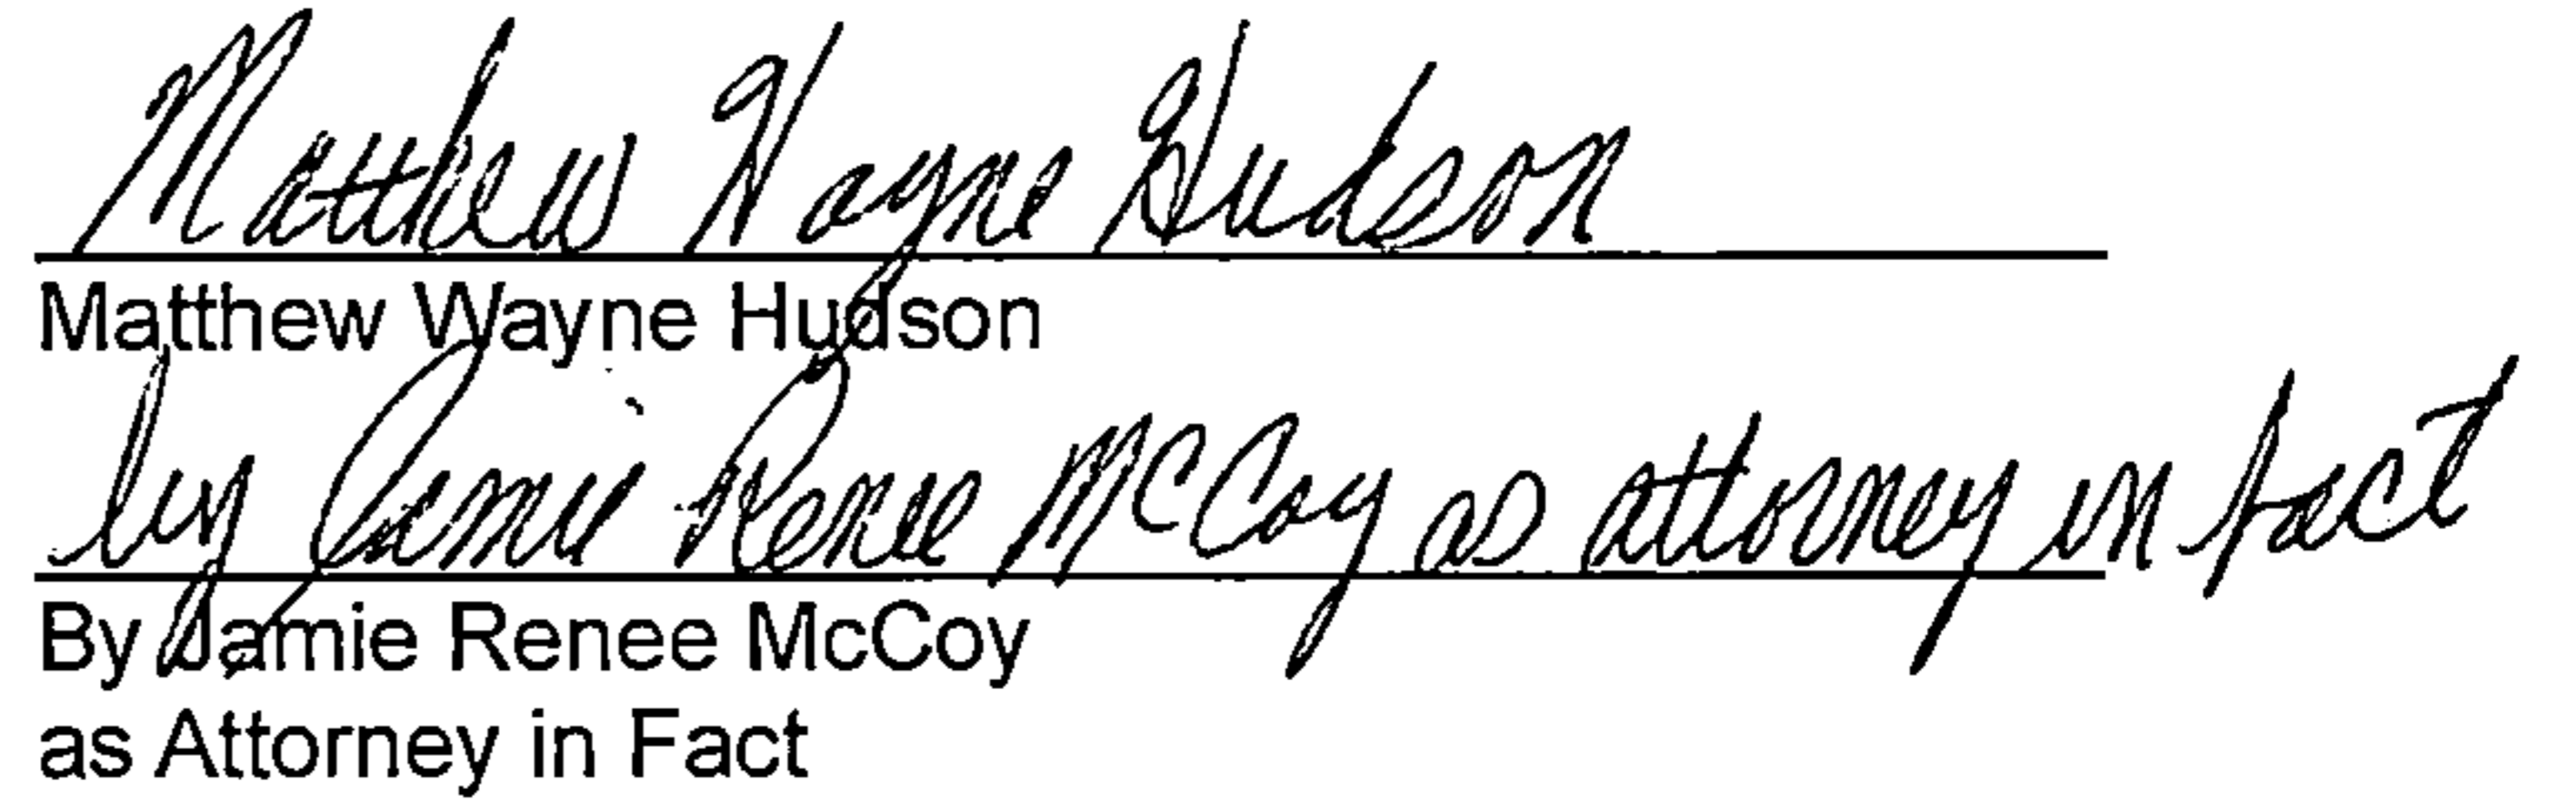 Matthew Wayne Hudson
Matthew Wayne Hudson
by Jamie Renee McCoy as attorney in fact
By Jamie Renee McCoy
as Attorney in Fact